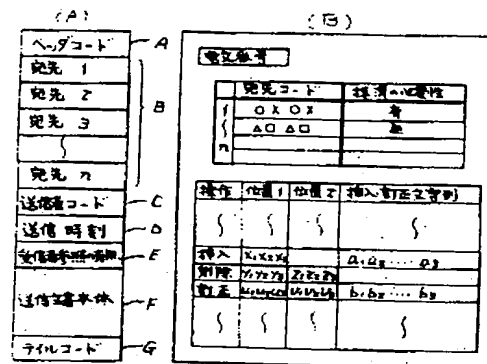 (A)
ヘッダコード A
宛先 1
宛先 2
宛先 3
B
宛先 n
送信者コード C
送信時刻 D
E
送信文書本体 F
テイルコード G
(B)
電文番号
宛先コード
1 ○×○× 有
△□△□ 無
n
操作 位置1 位置2 挿入/訂正文字列
挿入 X₁X₂X₃ a₁a₂……a₃
削除 Y₁Y₂Y₃ Z₁Z₂Z₃
訂正 U₁U₂U₃ V₁V₂V₃ b₁b₂……b₃